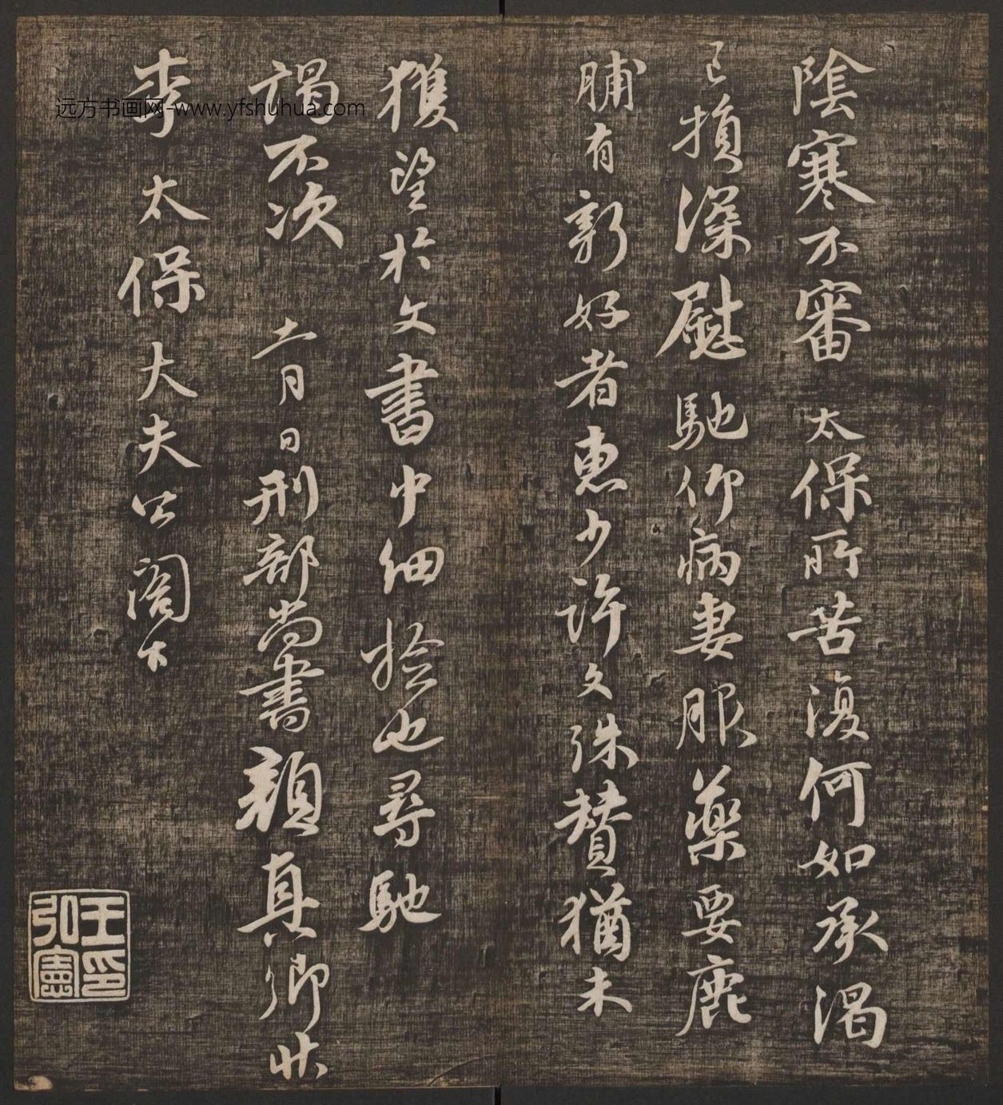 陰寒不審太保所苦復何如承渴
已損深慰馳仰病妻服藥要鹿
脯有新好者惠少許文殊贊猶未
獲望於文書中細撿也尋馳
謁不次 十一月日刑部尚書顏真卿狀
李太保大夫公閤下
王弘憲印
远方书画网-www.yfshuhua.com